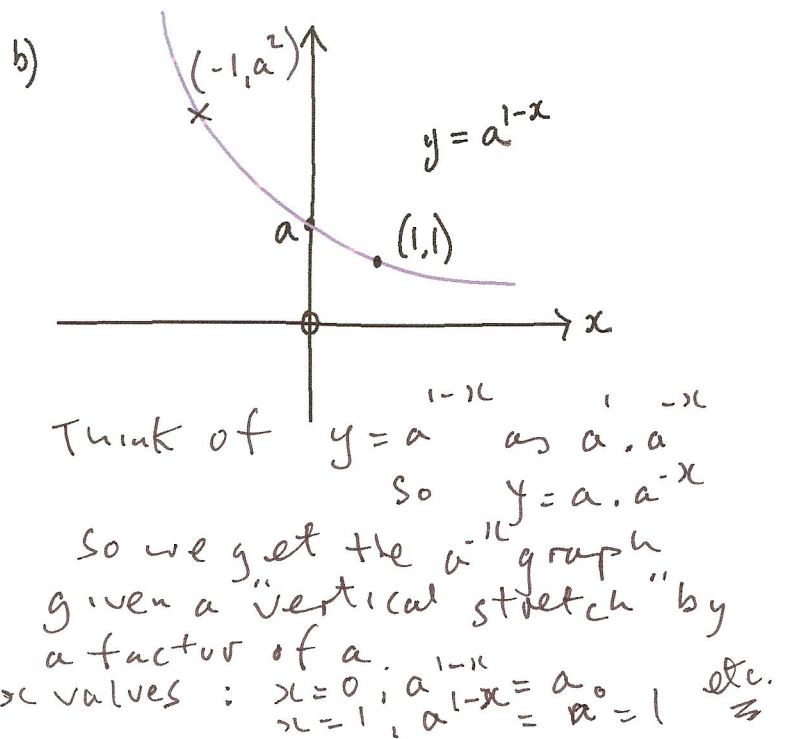 b)
(-1,a²)
y = a^{1-x}
a
(1,1)
O
x
Think of y = a^{1-x} as a^{1} . a^{-x}
So y = a . a^{-x}
So we get the a^{-x} graph
given a "vertical stretch" by
a factor of a.
x values : x=0, a^{1-x} = a
x=1, a^{1-x} = a^{0} = 1 etc.